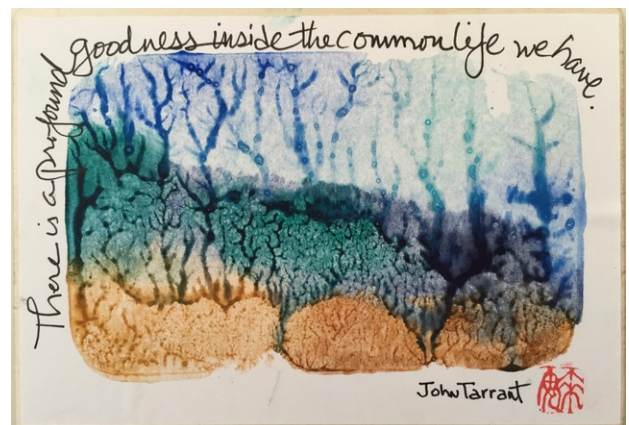 There is a profound goodness inside the common life we have.
John Tarrant